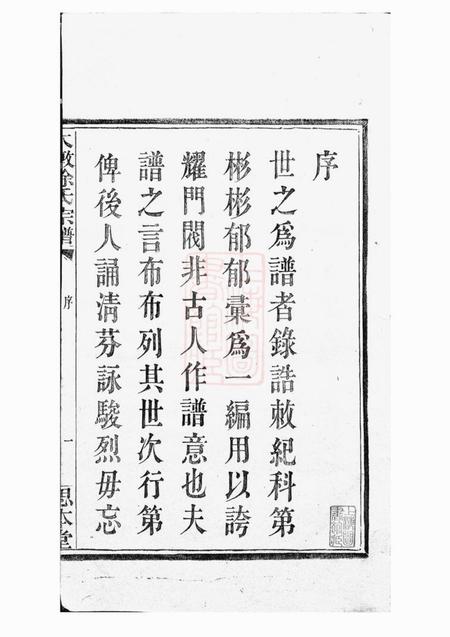 序
世之為譜者錄誥敕紀科第
彬彬郁郁彙為一編用以誇
耀門閥非古人作譜意也夫
譜之言布布列其世次行第
俾後人誦清芬詠駿烈毋忘
徐氏宗譜
序
一
思本堂